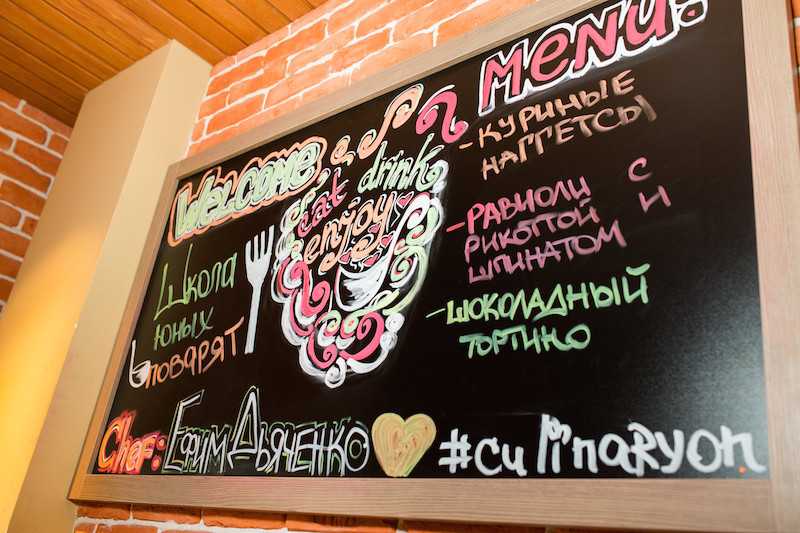 Welcome
eat drink
enjoy
Школа
юных
поварят
Menu:
- КУРИНЫЕ
НАГГЕТСЫ
- РАВИОЛИ С
РИКОТТОЙ И
ШПИНАТОМ
- ШОКОЛАДНЫЙ
ТОРТИНО
Chef: Ефим Дьяченко #culinaryon.